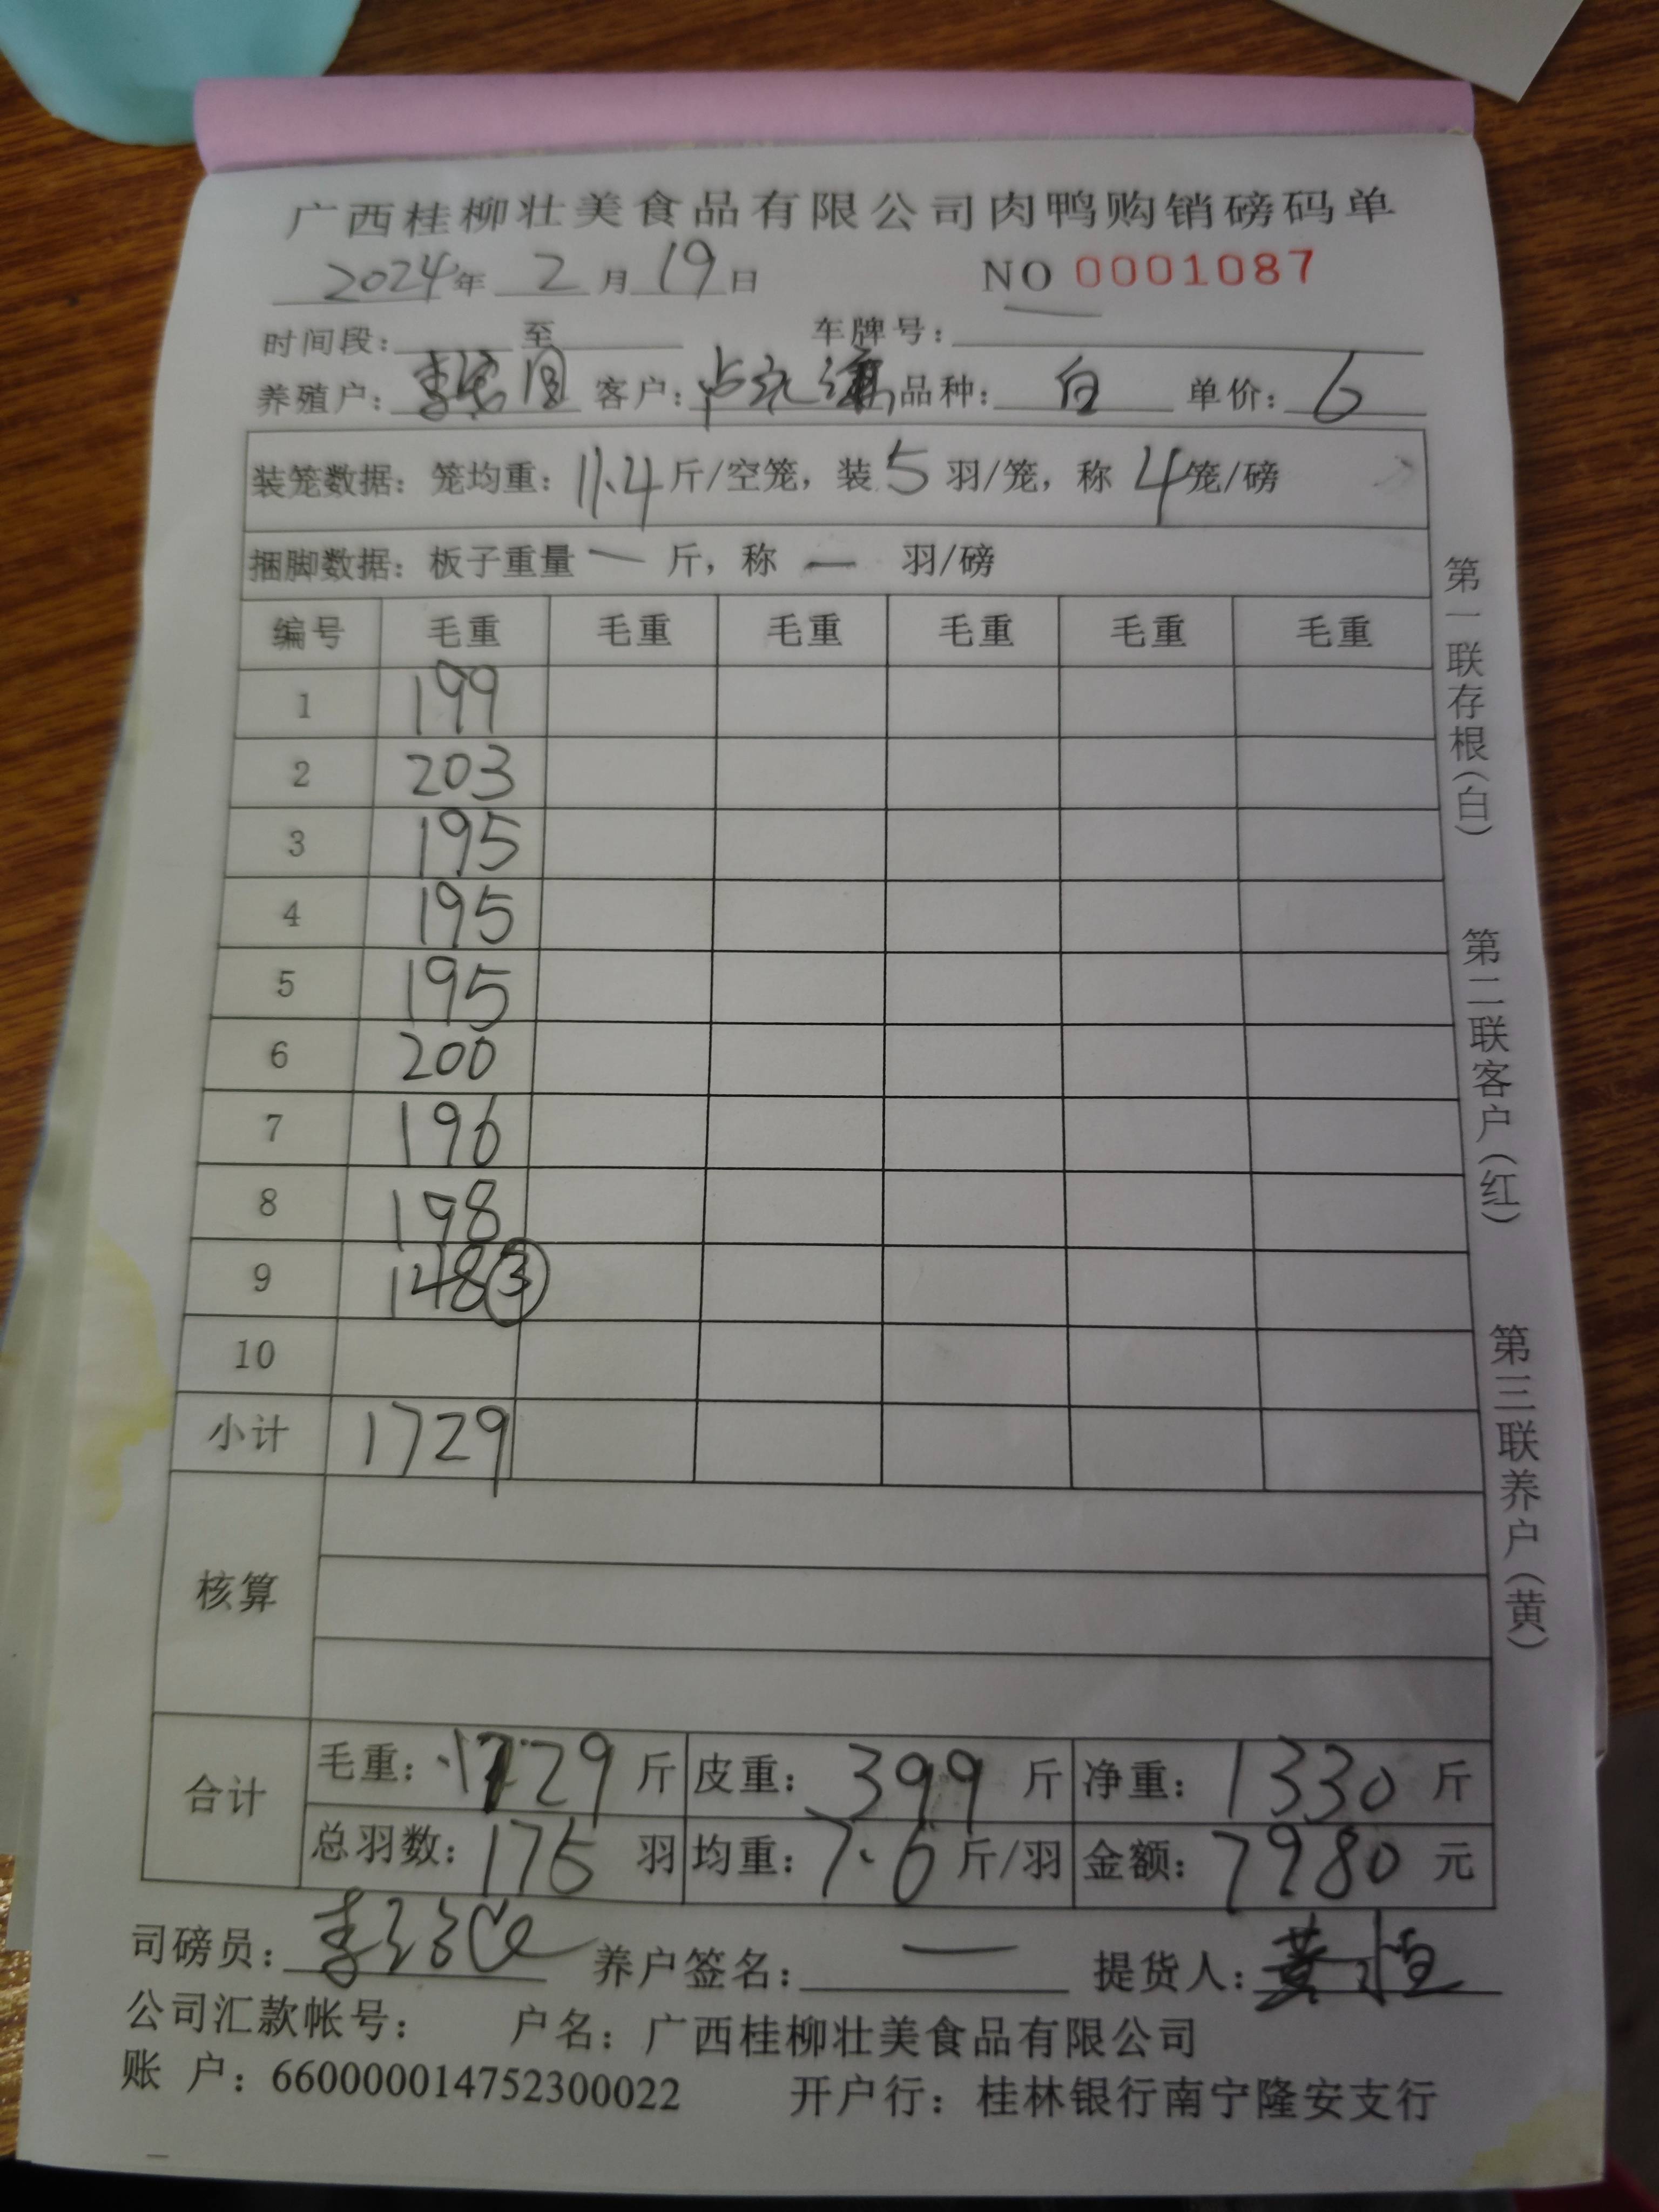 广西桂柳壮美食品有限公司肉鸭购销磅码单
2024年 2月19日 NO 0001087
时间段： 至 车牌号：
养殖户： 客户： 品种：白 单价：6
装笼数据：笼均重：11.4斤/空笼，装5羽/笼，称4笼/磅
捆脚数据：板子重量 一 斤，称 一 羽/磅
编号 毛重 毛重 毛重 毛重 毛重 毛重
1 199
2 203
3 195
4 195
5 195
6 200
7 196
8 198
9 148③
10
小计 1729
核算
合计 毛重：1729斤 皮重：399斤 净重：1330斤
总羽数：175羽 均重：7.6斤/羽 金额：7980元
司磅员： 养户签名：一 提货人：黄恒
公司汇款帐号： 户名：广西桂柳壮美食品有限公司
账 户：660000014752300022 开户行：桂林银行南宁隆安支行
第一联存根（白） 第二联客户（红） 第三联养户（黄）